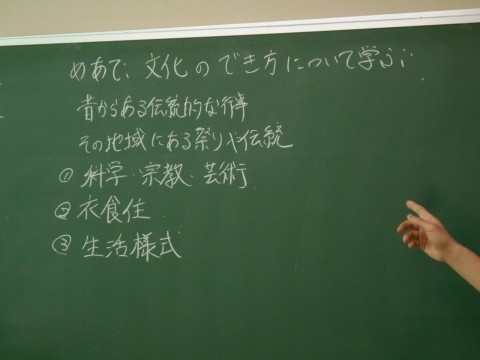 めあて:文化のでき方について学ぶ:
昔からある伝統的な行事
その地域にある祭りや伝統
① 科学・宗教・芸術
② 衣食住
③ 生活様式